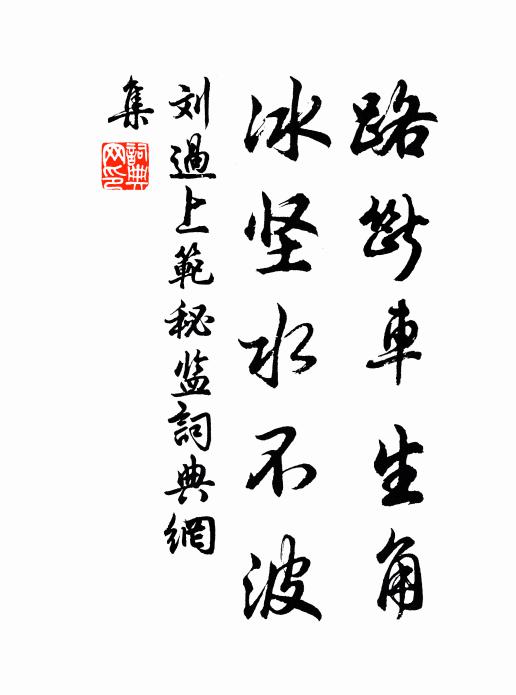 路断車生角
冰坚水不波
刘過上範秘监詞典網
集
詞典
网印